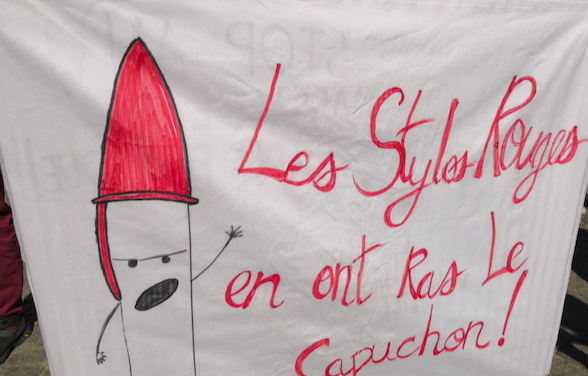 Les Stylos Rouges
en ont Ras Le
Capuchon !